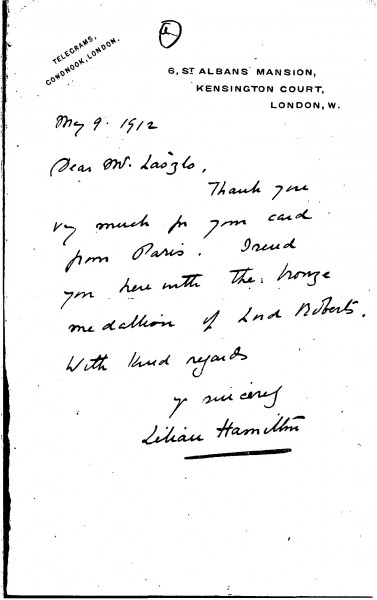 TELEGRAMS,
COWDNOOK, LONDON.
6, ST ALBANS MANSION,
KENSINGTON COURT,
LONDON, W.
May 9. 1912
Dear Mr. László,
Thank you
vy much for your card
from Paris. I send
you herewith the bronze
medallion of Lord Roberts.
With kind regards
yr sincerely
Lilian Hamilton